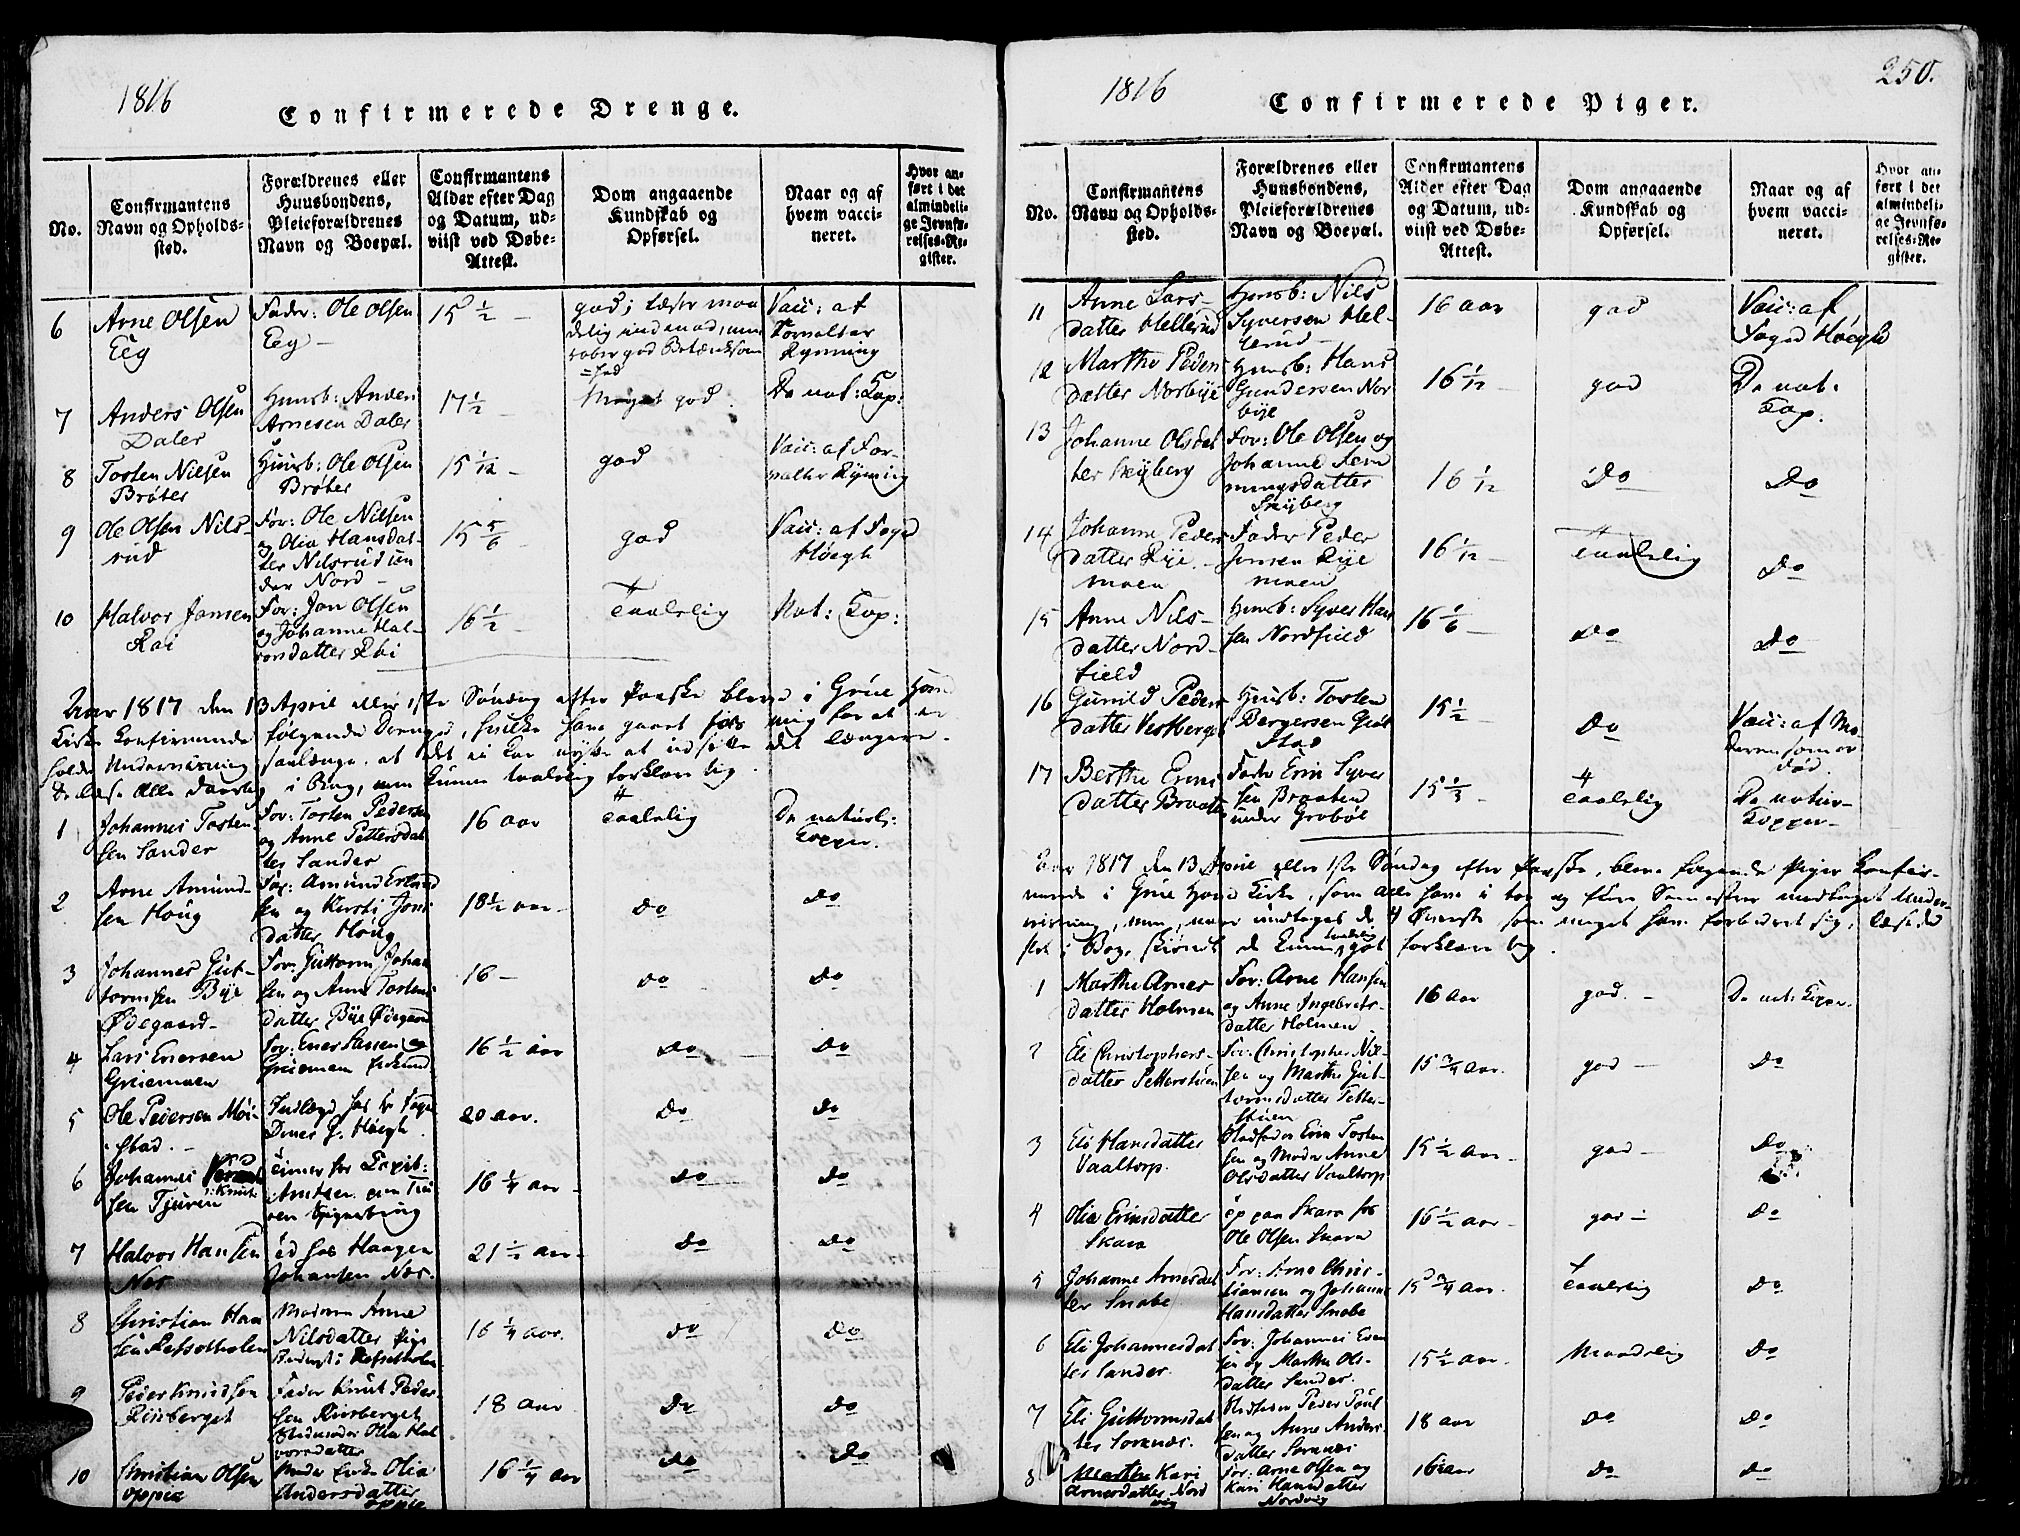 1816
Confirmerede Drenge.
No.
Confirmantens
Navn og Opholds-
sted.
Forældrenes eller
Huusbondens,
Pleieforældrenes
Navn og Boepæl.
Confirmantens
Alder efter Dag
og Datum, ud-
viist ved Døbe-
Attest.
Dom angaaende
Kundskab og
Opførsel.
Naar og af
hvem vacci-
neret.
Hvor an-
ført i det
almindeli-
ge Jevnfø-
relses-Re-
gister.
6
Arne Olsen
Eeg
Fader: Ole Olsen
Eeg
15 1/2
god; læser maa
delig
Vacc: af
Forvalter
Rynning
7
Anders Olsen
Daler
Huusb: Anders
Arnesen Daler
17 1/2
Meget god
De nat: Kop:
8
Tosten Nilsen
Bråten
Huusb: Ole Olsen
Bråten
15 1/12
god
Vacc: af For-
valter Rynning
9
Ole Olsen Nils-
rud
For: Ole Nilsen
og Olia Hansdat-
ter Nilsrud
Nord
15 5/6
god
Vacc: af Foged
Høegh
10
Halvor Jonsen
Røi
For: Jon Olsen
og Johanne Hal-
vorsdatter Røi
16 1/2
Taalelig
Nat: Kop:
Aar 1817 den 13 April eller 1ste Søndag efter Paaske bleve i Grue Hoved
Kirke Confirmerede følgende Drenge, hvilke have gaaet for mig
Underviisning saalænge, at det ei kan nytte at udsætte det længere.
De læse alle daarlig i Bog, men kunne taalelig forklare sig.
1
Johannes Tosten-
sen Sander
For: Tosten Pedersen
og Anne Pettersdat-
ter Sander
16 aar
Taalelig
De naturl:
Kopper.
2
Arne Amund-
sen Houg
For: Amund Erland
sen og Kirsti Jons
datter Houg
18 1/2 aar
do
do
3
Johannes Gut-
tormsen Bye
Ødegaard
For: Guttorm Johan
sen og Anne Tostens
datter Bye Ødegaard
16
do
do
4
Lars Enersen
Gruemoen
For: Ener Larsen og
Gruemoen
16 1/2 aar
do
do
5
Ole Pedersen Moi-
stad.
Indlagd hos Hr Foged
Høegh
20 aar.
do
do
6
Johannes
Knud
sen Tjuren
Tjener for Capit:
16 1/4 aar
do
do
7
Halvor Hansen
Nor
hos Haagen
Johansen Nor.
21 1/2 aar
do
do
8
Christian Han
sen Refsetholen
Moderen Anne
Nilsdatter
Refsetholen
16 1/4 aar.
do
do
9
Peder Knudsen
Riisberget
Fader Knut Peder
sen Riisberget
Stedmoder Olia Hal
vorsdatter
18 aar
do
do
10
Christian Olsen
Oppie
Moder Enke Olia
Andersdatter
Oppie
16 1/4 aar
do
do
1816
Confirmerede Piger.
250.
No.
Confirmantens
Navn og Opholds-
sted.
Forældrenes eller
Huusbondens,
Pleieforældrenes
Navn og Boepæl.
Confirmantens
Alder efter Dag
og Datum, ud-
viist ved Døbe-
Attest.
Dom angaaende
Kundskab og
Opførsel.
Naar og af
hvem vacci-
neret.
Hvor an-
ført i det
almindeli-
ge Jevnfø-
relses-Re-
gister.
11
Anne Lars-
datter Hellerud
Huusb: Nils
Syversen Hel-
lerud
16 aar
god
Vacc: af
Foged Høegh
12
Marthe Peders
datter Norbye
Huusb: Hans
Gundersen Nor
bye
16 1/12
god
De nat:
Kop.
13
Johanne Olsdat
ter Skyberg
For: Ole Olsen og
Johanne Fem
mingsdatter
Skyberg
16 1/12
Do
Do
14
Johanne Peders
datter Rye
moen
Fader Peder
Jensen Rye
moen
16 1/12
Taalelig
Do
15
Anne Nils-
datter Nord-
field
Huusb: Syver Han
sen Nordfield
16 1/6
Do
Do
16
Gunild Peders
datter Vestberget
Huusb: Tosten
Bergersen
Stad
15 1/2
Do
Vacc: af Mo
deren, som er
død.
17
Berthe Erics
datter Braaten
Fader Eric Syver
sen Braaten
under Grøbøl
15 1/3
Taalelig
De natur-
Kopper
Aar 1817 den 13 April eller 1ste Søndag efter Paaske, bleve følgende Piger Confir-
merede i Grue Hoved Kirke, som alle have i to og flere Semestre modtaget Under-
viisning, men, naar undtages de 4 Øverste som meget have forbedret sig, læse de
slet i Bog, skiønt de kunne taalelig got forklare sig.
1
Marthe Arnes
datter Holmen
For: Arne Hansen
og Anne Ingebrets-
datter Holmen
16 aar
god
De nat: Kopr.
2
Eli Christophers-
datter Petterstuen
For: Christopher Nil-
sen og Marthe Gut-
tormsdatter Petter-
stuen
15 3/4 aar.
god
Do
3
Eli Hansdatter
Vaaltorp.
Stedfader Eric Tosten
sen og Moder Anne
Olsdatter Vaaltorp
15 1/2 aar
god
Do
4
Olia Ericsdatter
Skara
er paa Skara hos
Ole Olsen Skara
16 1/2 aar
god
Do
5
Johanne Arnesdat
ter Snøbe
For: Arne Chris-
tiansen og Johanne
Hansdatter Snøbe
15 3/4 aar.
Taalelig
Do
6
Eli Johannesdat
ter Sander.
For: Johannes Even
sen og Marthe Ols-
datter Sander.
15 1/2 aar.
Maadelig
Do
7
Eli Guttormsdat
ter Sornæs.
Stedfader Peder Poul
sen og Anne Anders-
datter Sornæs
18 aar
do
do
8
Kari
Arnesdatter Nord
vig
For: Arne Olsen og
Kari Hansdatter
Nordvig
16 aar
do
do